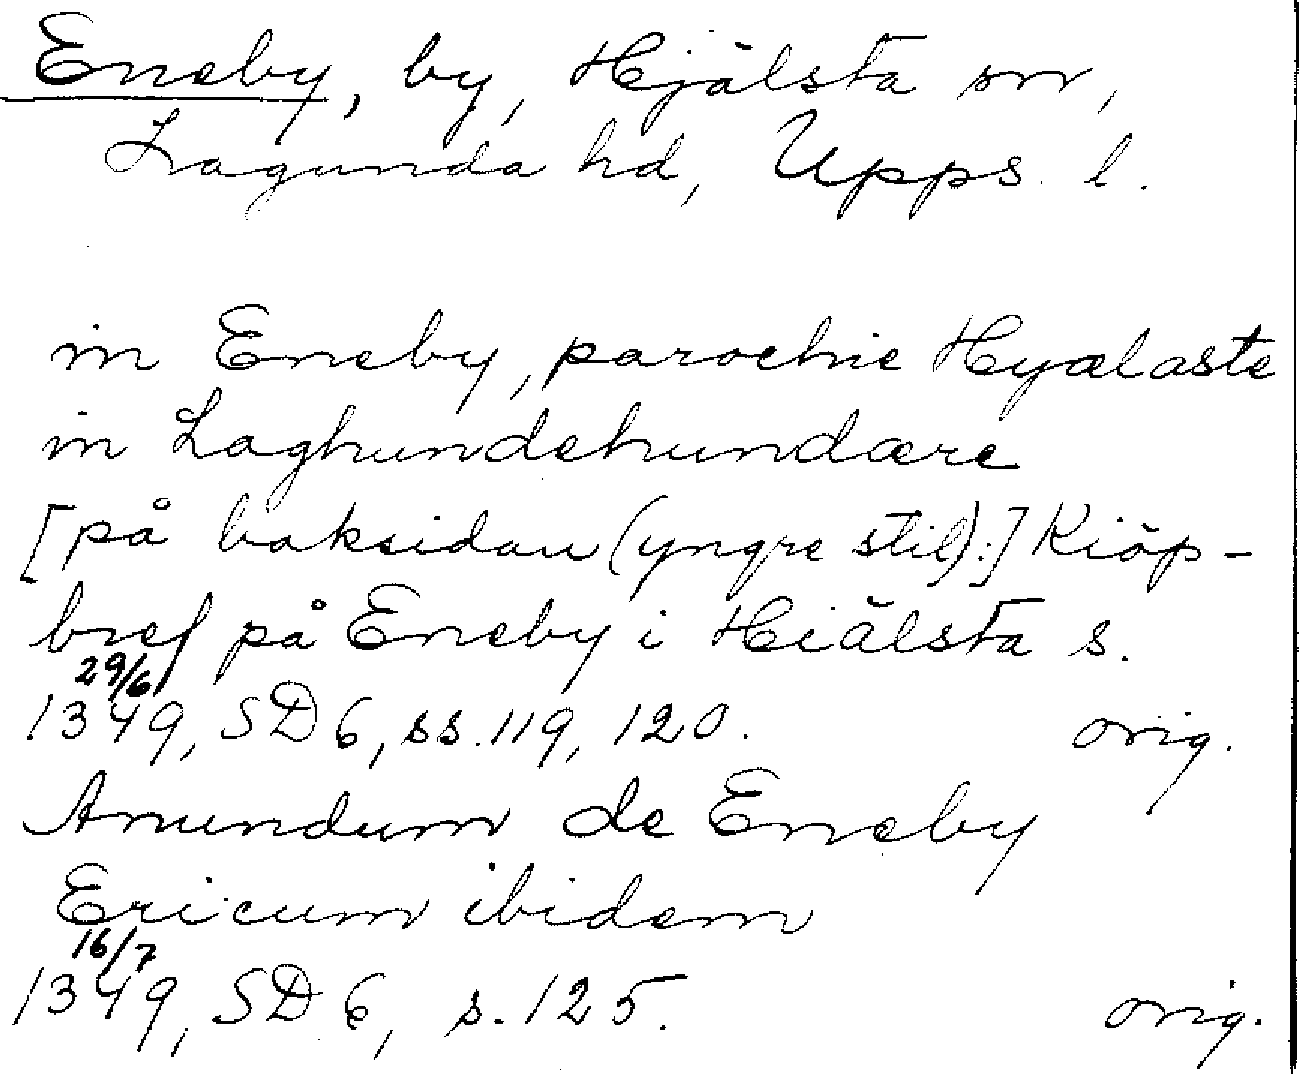 Eneby, by, Hjälsta sn,
Lagunda hd, Upps. l.
in Eneby, parochie Hyælaste
in Laghundehundære
[på baksidan (yngre stil):] Kiöp-
bref på Eneby i Hiälsta s.
29/6
1349, SD 6, ss. 119, 120. orig.
Anundum de Eneby
Ericum ibidem
16/7
1349, SD 6, s. 125. orig.